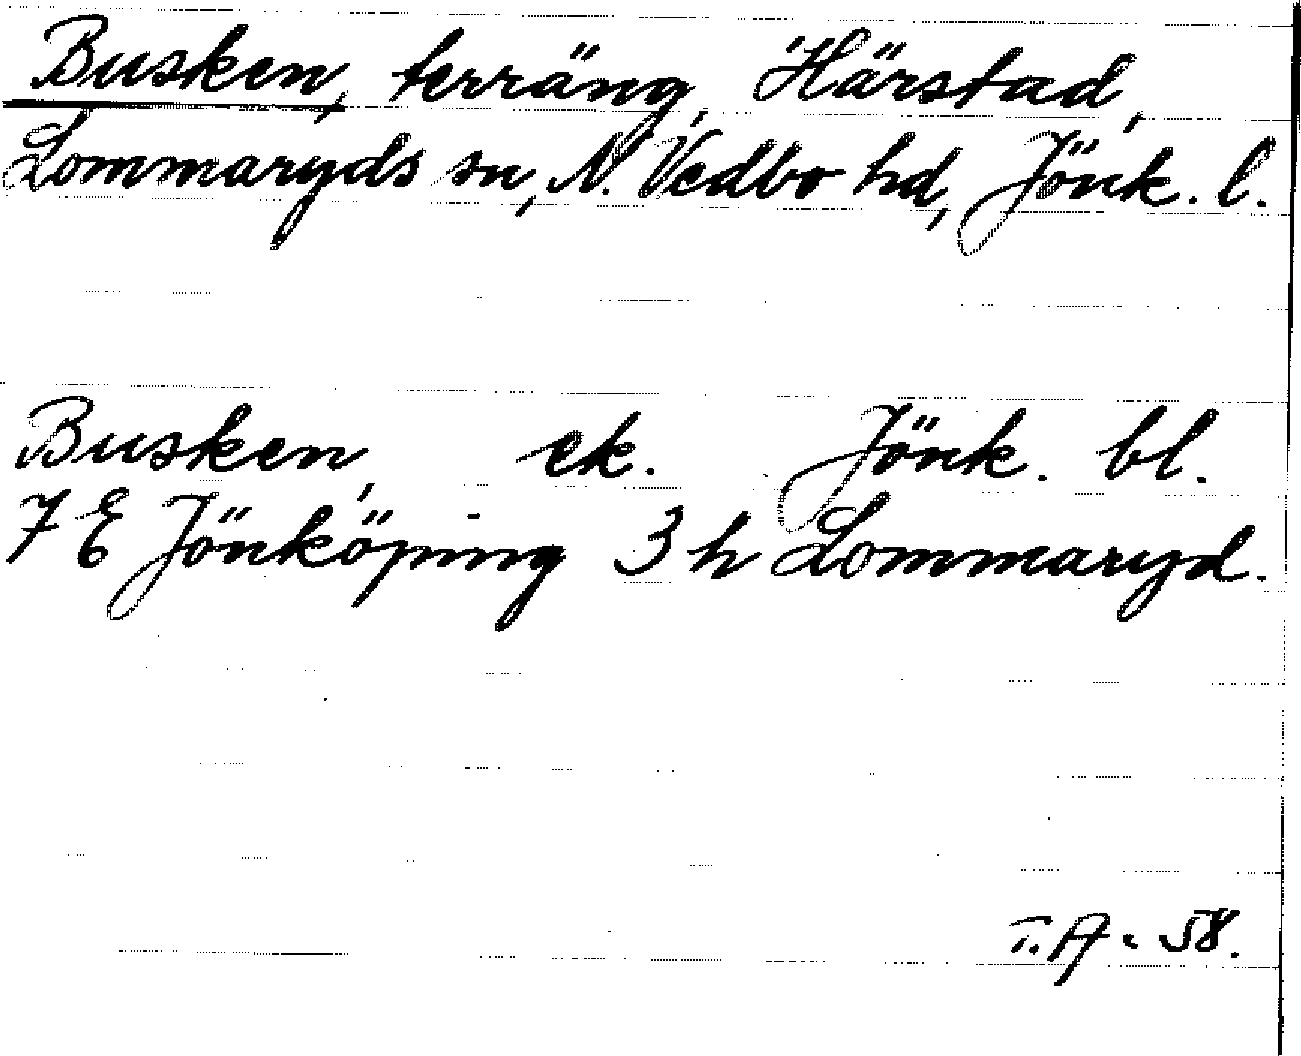 Busken, terräng, Härstad,
Lommaryds sn, N. Vedbo hd, Jönk. l.
Busken, ek. Jönk. bl.
7 E Jönköping 3 h Lommaryd.
T.A. 58.